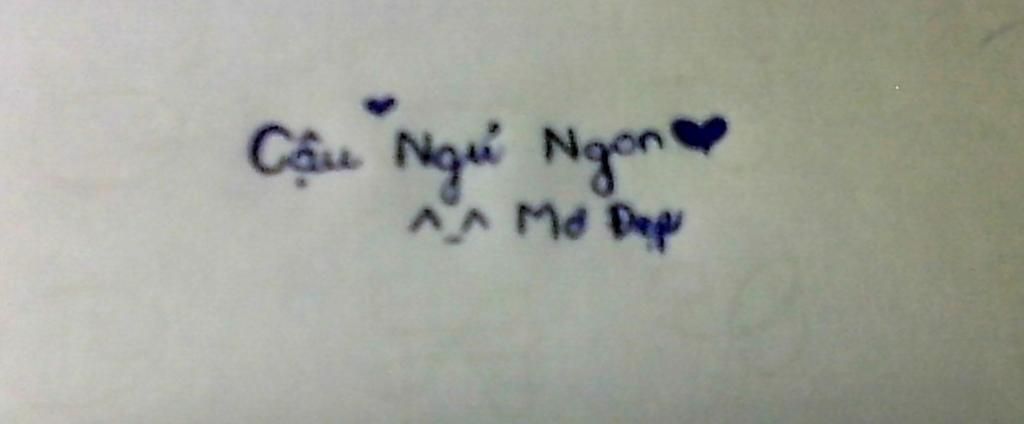 Cậu Ngủ Ngon
^_^ Mơ Đẹp